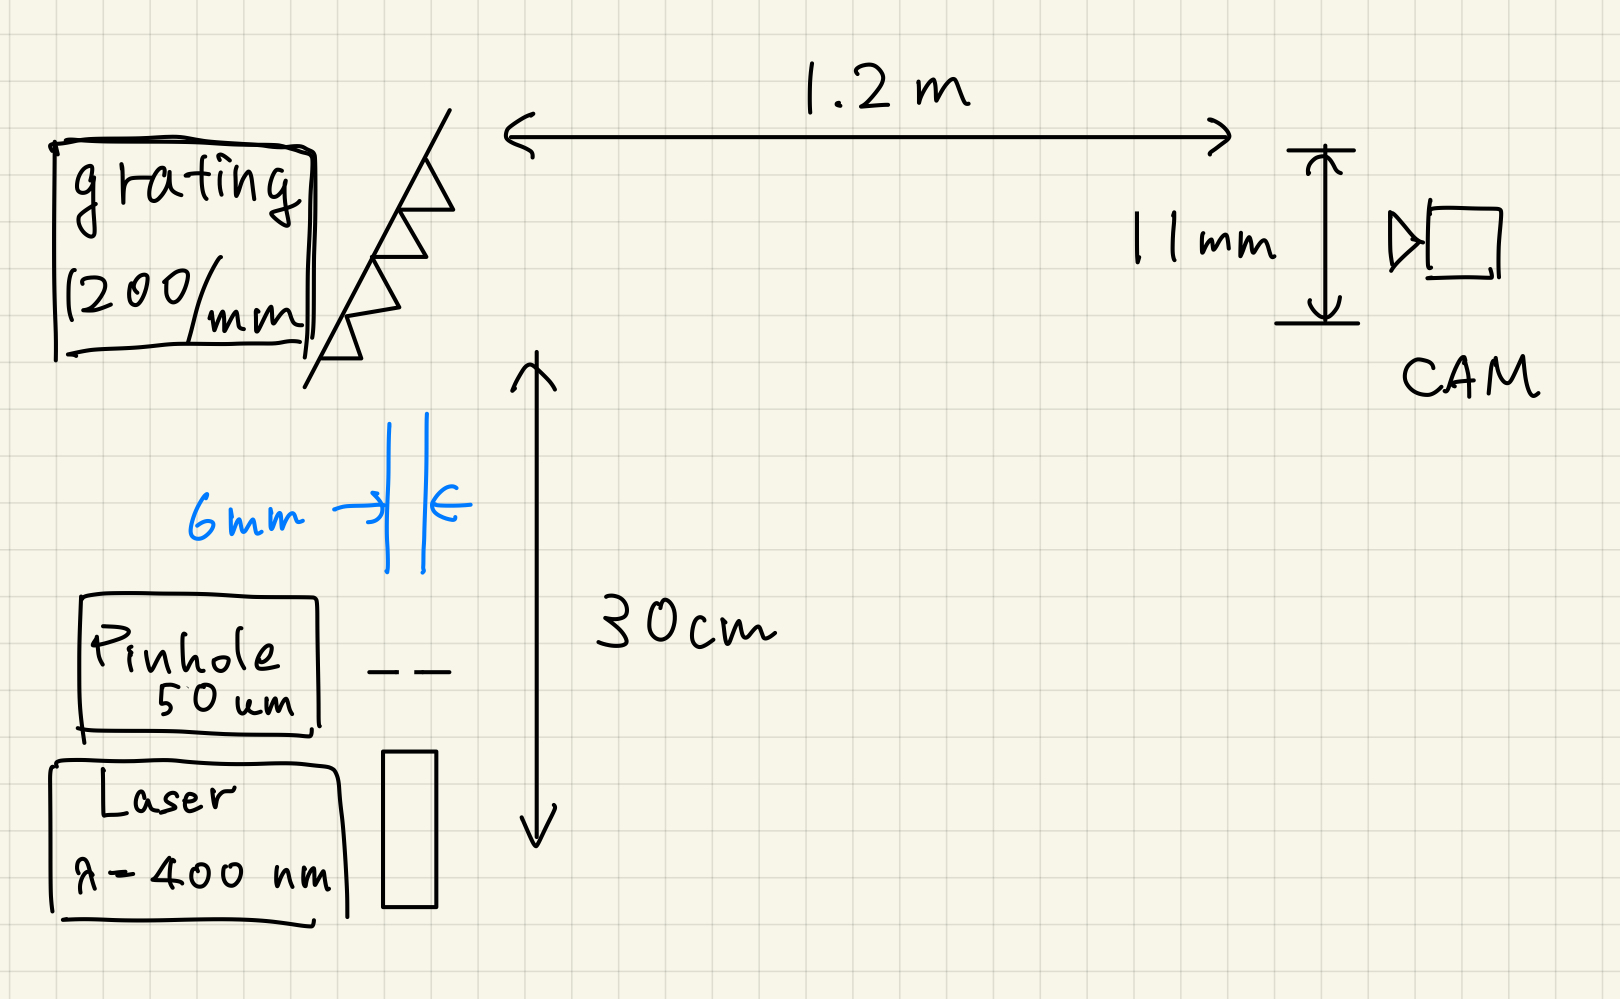 1.2 m
grating
1200/mm
11 mm
CAM
6mm
30cm
Pinhole
50 um
Laser
λ-400 nm